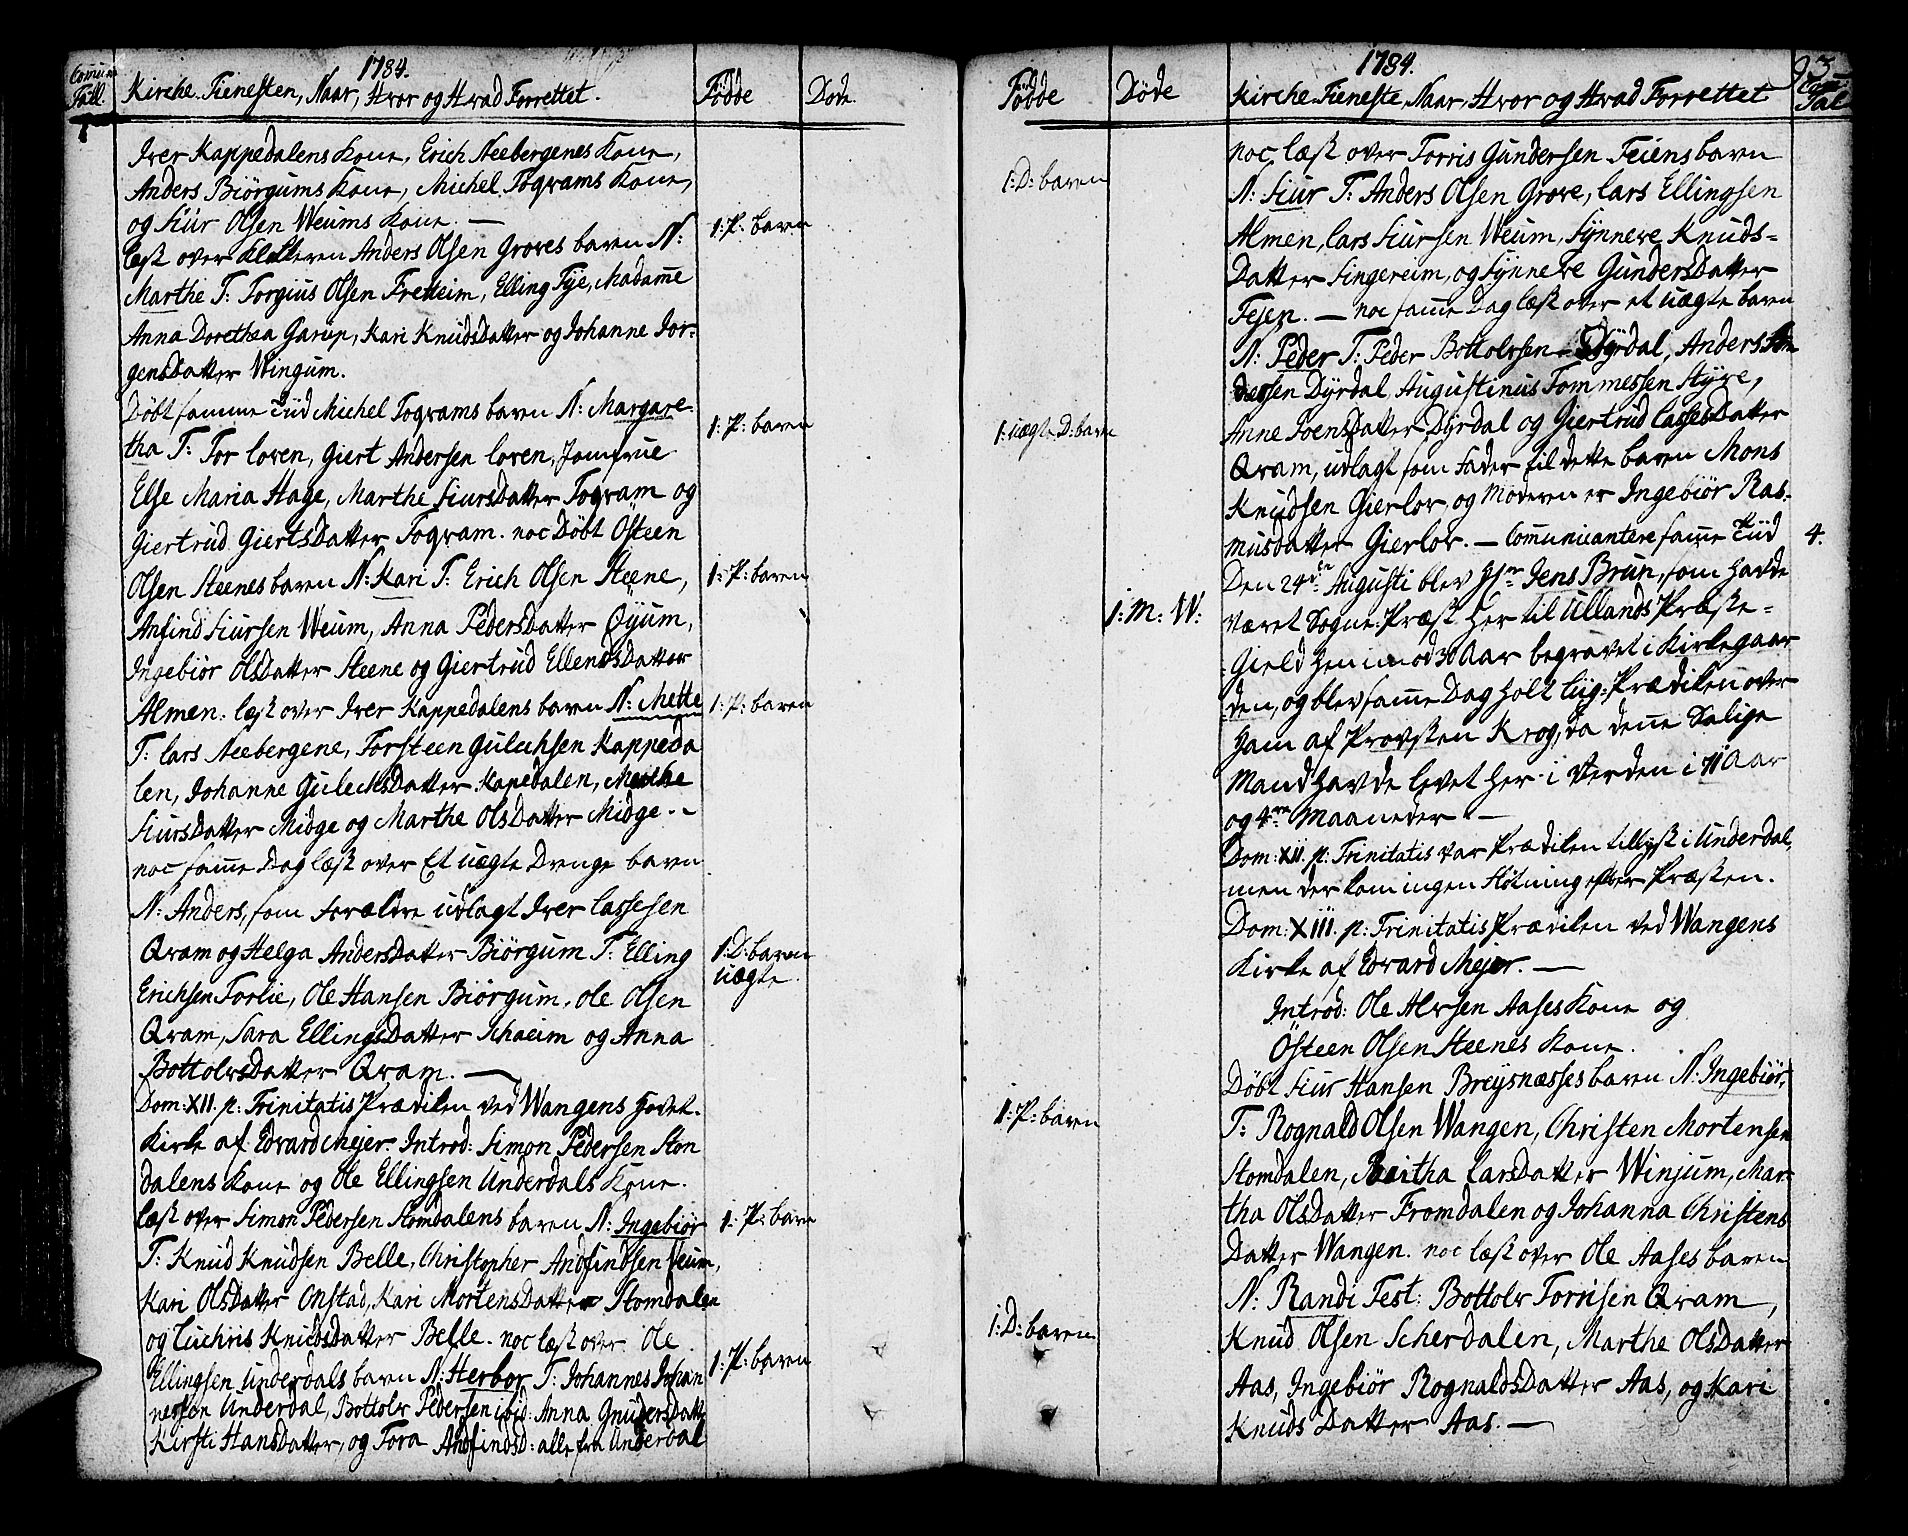 Comun
Tall.
1784.
Kirche Tienesten, Naar, Hvor og Hvad Forrettet.
Födde
Döde
Iver Kappedalens Kone, Erich Neebergenes Kone,
Anders Biörgums Kone, Michel Fogvams Kone,
og Siur Olsen Weums Kone. —
læst over Anders Olsen Groves barn N:
1: P: barn
Marthe T: Torgius Olsen Fretteim, Elling Tÿe, Madame
Anna Dorethea Garup, Kari Knudsdatter og Johanne Jör-
gensdatter Wingum.
Döbt samme Tiid Michel Fogvams barn N: Margare-
1: P: barn
tha T: Tor Loven, Giert Andersen Loven, Jomfrue
Else Maria Hage, Marthe Siursdatter Fogvam og
Giertrud Giertsdatter Fogvam. noc Döbt Östeen
Olsen Steenes barn N: Kari T: Erich Olsen Steene,
1: P: barn
Anfind Siursen Weum, Anna Pedersdatter Öÿum,
Ingebiör Olsdatter Steene og Giertrud Ellendsdatter
Almen. læst over Iver Kappedalens barn N: Mette
1: P: barn
T: Lars Neebergene, Torsteen Gulachsen Kappeda
len, Johanne Gulechsdatter Kapedalen, Marthe
Siursdatter Midge og Marthe Olsdatter Midge. —
noc samme Dag læst over Et uægte Drenge barn
N: Anders, som Forældre udlagt Iver Lassesen
Qvam og Helga Andersdatter Biörgum T: Elling
1: D: barn
uægte
Erichsen Forlie, Ole Hansen Biörgum, Ole Olsen
Qvam, Sara Ellingsdatter Schaeim og Anna
Bottolvsdatter Qvam. —
Dom: XII. p: Trinitatis Prædiken ved Wangens Hovet-
Kirke af Edvard Mejer. Introd: Simon Pedersen Stom
dalens Kone og Ole Ellingsen Underdals Kone.
læst over Simon Pedersen Stomdalens barn N: Ingebiör
1: P: barn
T: Knud Knudsen Belle, Christopher Andfindsen Veum,
Kari Olsdatter Onstad, Kari Mortensdatter Stomdalen
og Luchris Knudsdatter Belle. noc læst over Ole
Ellingsen Underdals barn N: Herbor T: Johannes Johan
1: P: barn
nessen Underdal, Bottolv Pedersen ibid: Anna Gundersdatt
Kirsti Hansdatter, og Tora Andfindsd: alle fra Underdal
Födde
Döde
1784.
Kirche Tieneste, Naar, Hvor og Hvad Forrettet
93
Com:
Tal
noc læst over Torris Gundersen Feiens barn
1: D: barn
N: Siur T: Anders Olsen Grove, Lars Ellingsen
Almen, Lars Siursen Weum, Synneve Knuds-
Datter Singereim, og Synneve Gundersdatter
Fejen. — noc samme Dag læst over et uægte barn
N: Peder T: Peder Bottolvsen Dÿrdal, Anders An-
dersen Dÿrdal, Augustinus Tommessen Styve,
Anne Joensdatter Dÿrdal og Giertrud Lassesdatter
1: uægte D: barn
Qvam, udlagt som Fader til dette barn Mons
Knudsen Gierlov og Moderen er Ingebiör Ras-
musdatter Gierlov. — Communicantere samme Tiid
4.
Den 24de Augusti blev Hr Jens Brun, som Havde
været Sogne Præst Her til Ullands Præste-
1: M: W:
Gield Hen imod 30 Aar begravet i Kirkegaar
den, og blev samme Dag Holt Liig-Prædiken over
Ham af Provsten Krog, da denne Salige
Mand Havde levet Her i Verden i 71 Aar
og 4re Maaneder —
Dom: XII. p: Trinitatis var Prædiken tillyst i Underdal,
men der kom ingen Flötning efter Præsten.
Dom: XIII. p: Trinitatis Prædiken ved Wangens
Kirke af Edvard Mejer. —
Introd: Ole Alvsen Aases Kone og
Östeen Olsen Steenes Kone.
Döbt Siur Hansen Breÿsnæsses barn N: Ingebiör,
1: P: barn
T: Rognald Olsen Wangen, Christen Mortensen
Stomdalen, Larsdatter Winjum, Mar-
tha Olsdatter Fromdalen og Johanna Christens
Datter Wangen. noc læst over Ole Aases barn
N: Randi Test: Bottolv Torrisen Qvam,
1: D: barn
Knud Olsen Scherdalen, Marthe Olsdatter
Aas, Ingebiör Rognaldsdatter Aas, og Kari
Knuds Datter Aas. —